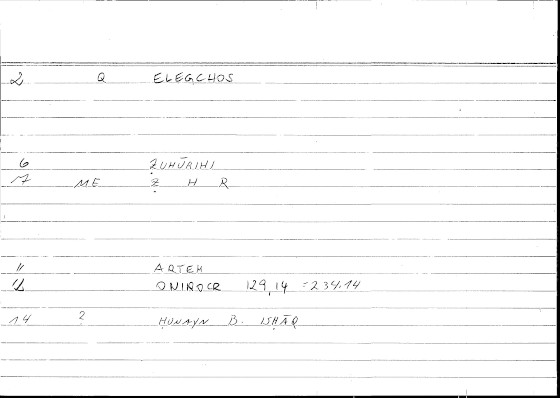 2 Q ELEGCHOS
6 ẒUHŪRIHI
7 ME Ẓ H R
11 ARTEM
12 ONIROCR 129,14 = 234.14
14 2 ḤUNAYN B. ISḤĀQ